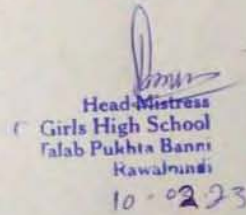 Head Mistress
Girls High School
Talab Pukhta Banni
Rawalpindi
10-02-23